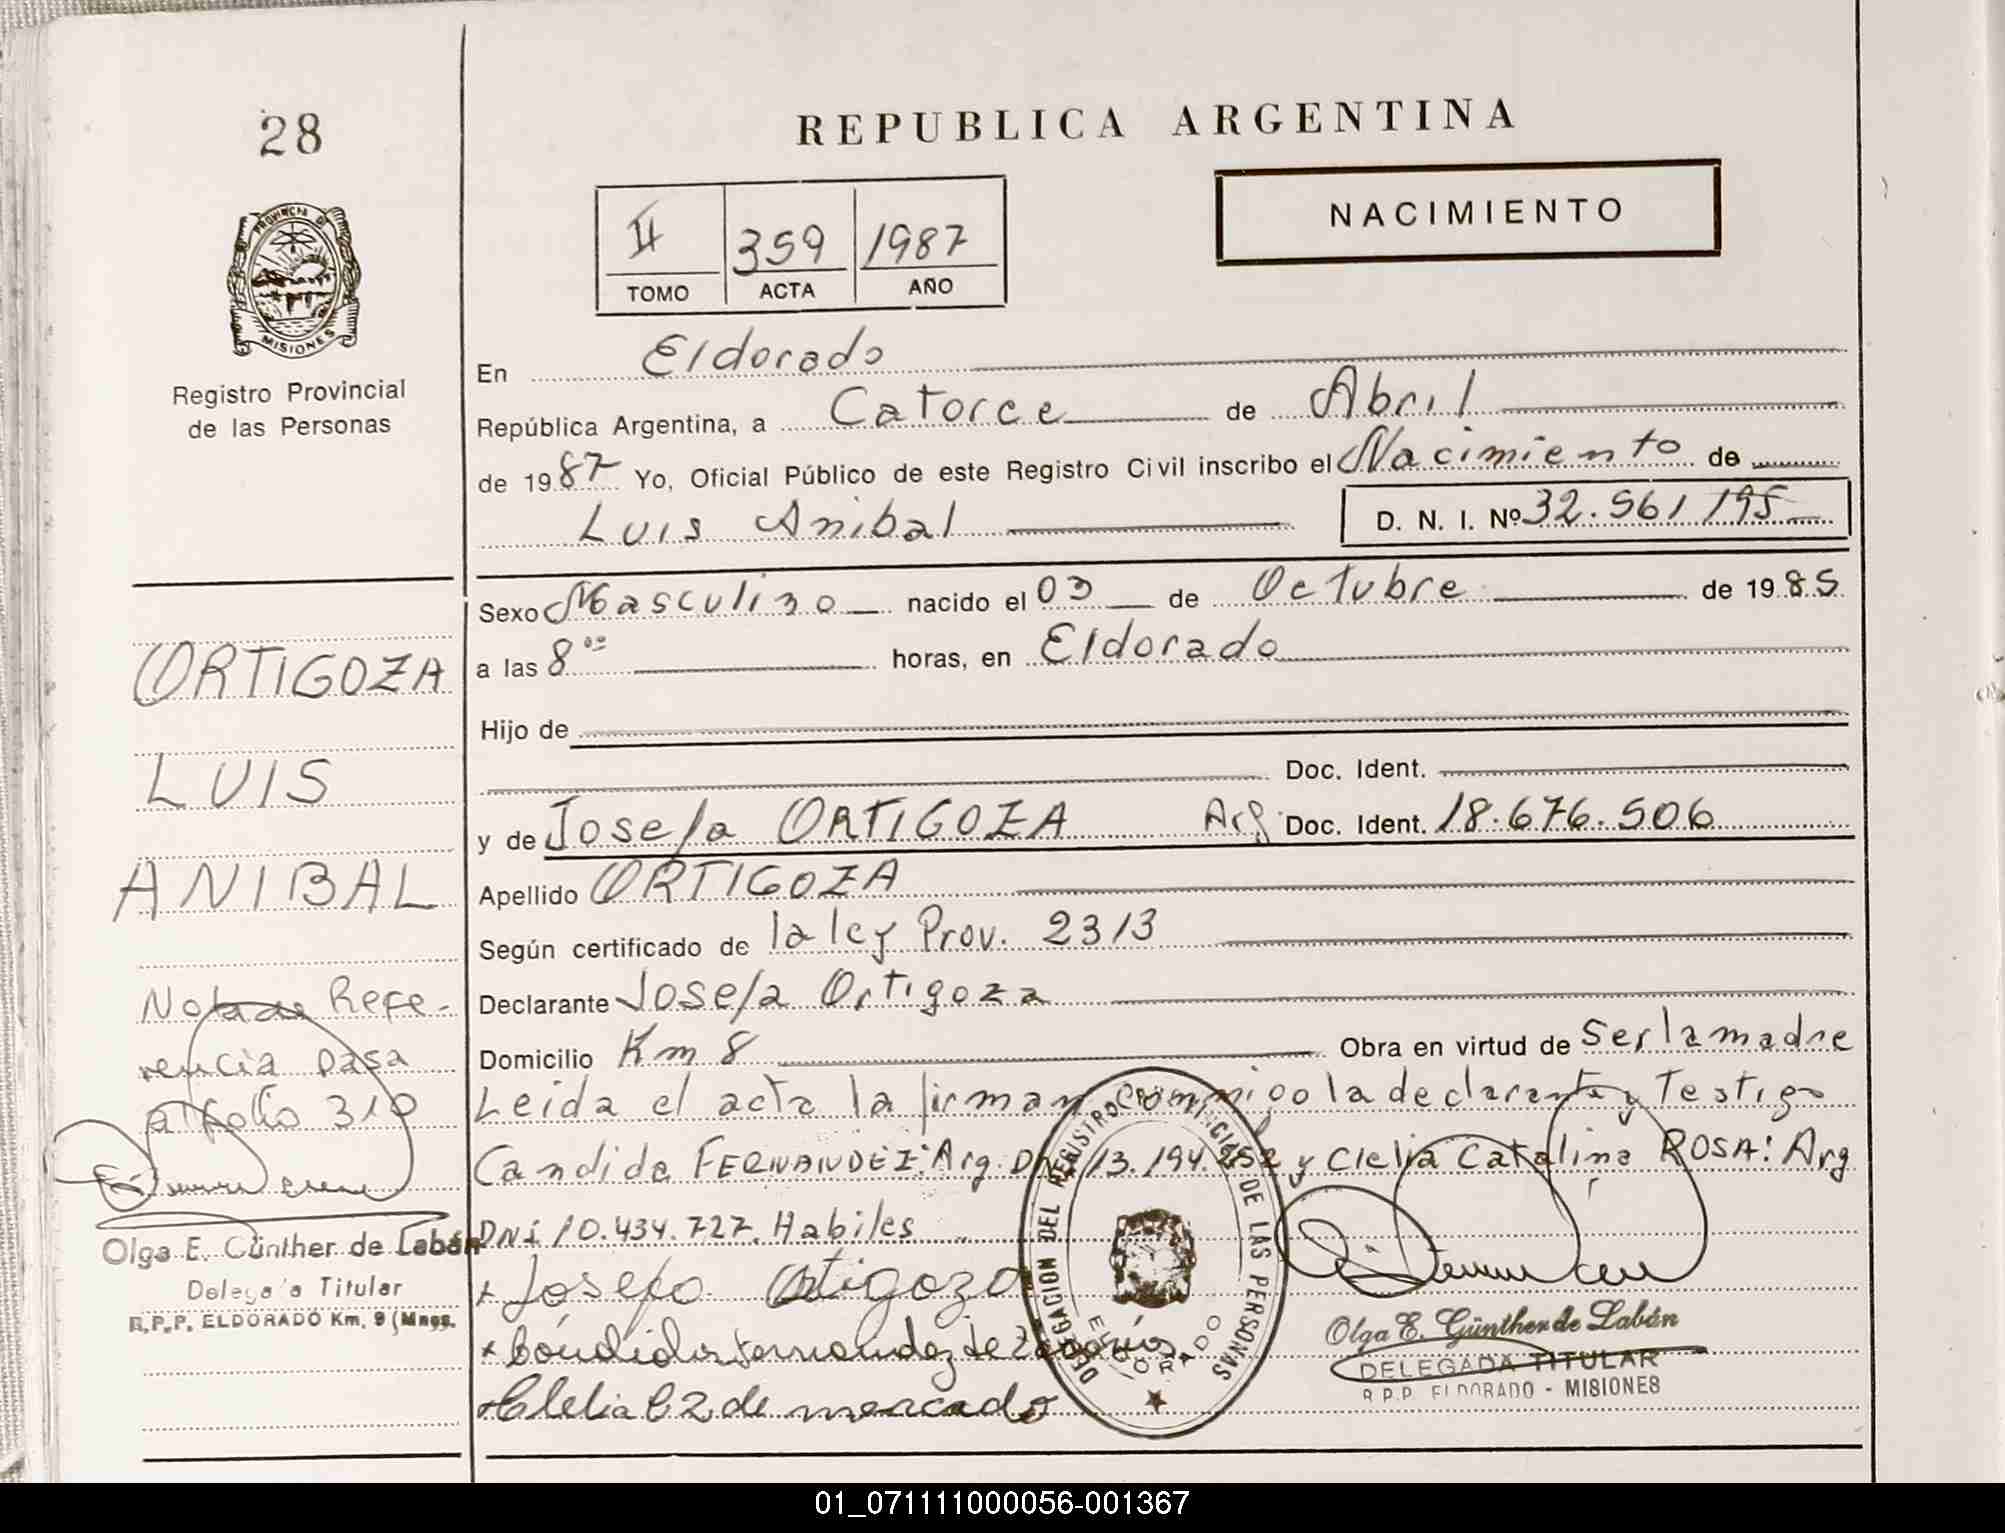 28
REPUBLICA ARGENTINA
NACIMIENTO
II 359 1987
TOMO ACTA AÑO
PROVINCIA DE
MISIONES
Registro Provincial
de las Personas
En Eldorado
República Argentina, a Catorce de Abril
de 1987 Yo, Oficial Público de este Registro Civil inscribo el Nacimiento de
Luis Anibal D. N. I. Nº 32.561.195
Sexo Masculino nacido el 03 de Octubre de 1985
a las 8 ºº horas, en Eldorado
Hijo de
Doc. Ident.
y de Josefa ORTIGOZA Arg Doc. Ident. 18.676.506
Apellido ORTIGOZA
Según certificado de la ley Prov. 2313
Declarante Josefa Ortigoza
Domicilio Km 8 Obra en virtud de Ser la madre
Leida el acta la firman conmigo la declarante y Testigo
Candida FERNANDEZ: Arg. DNI 13.194. y Clelia Catalina ROSA: Arg
DNI 10.434.727. Habiles
x Josefa Ortigoza
x Candida Fernandez de
x Clelia C R de mercado
ORTIGOZA
LUIS
ANIBAL
Nota de Refe-
rencia pasa
al folio 310
Olga E. Günther de Labán
Delegada Titular
R.P.P. ELDORADO Km. 9 (Mnes.
DELEGACION DEL REGISTRO PROVINCIAL DE LAS PERSONAS
ELDORADO
Olga E. Günther de Labán
DELEGADA TITULAR
R.P.P. ELDORADO - MISIONES
01_071111000056-001367